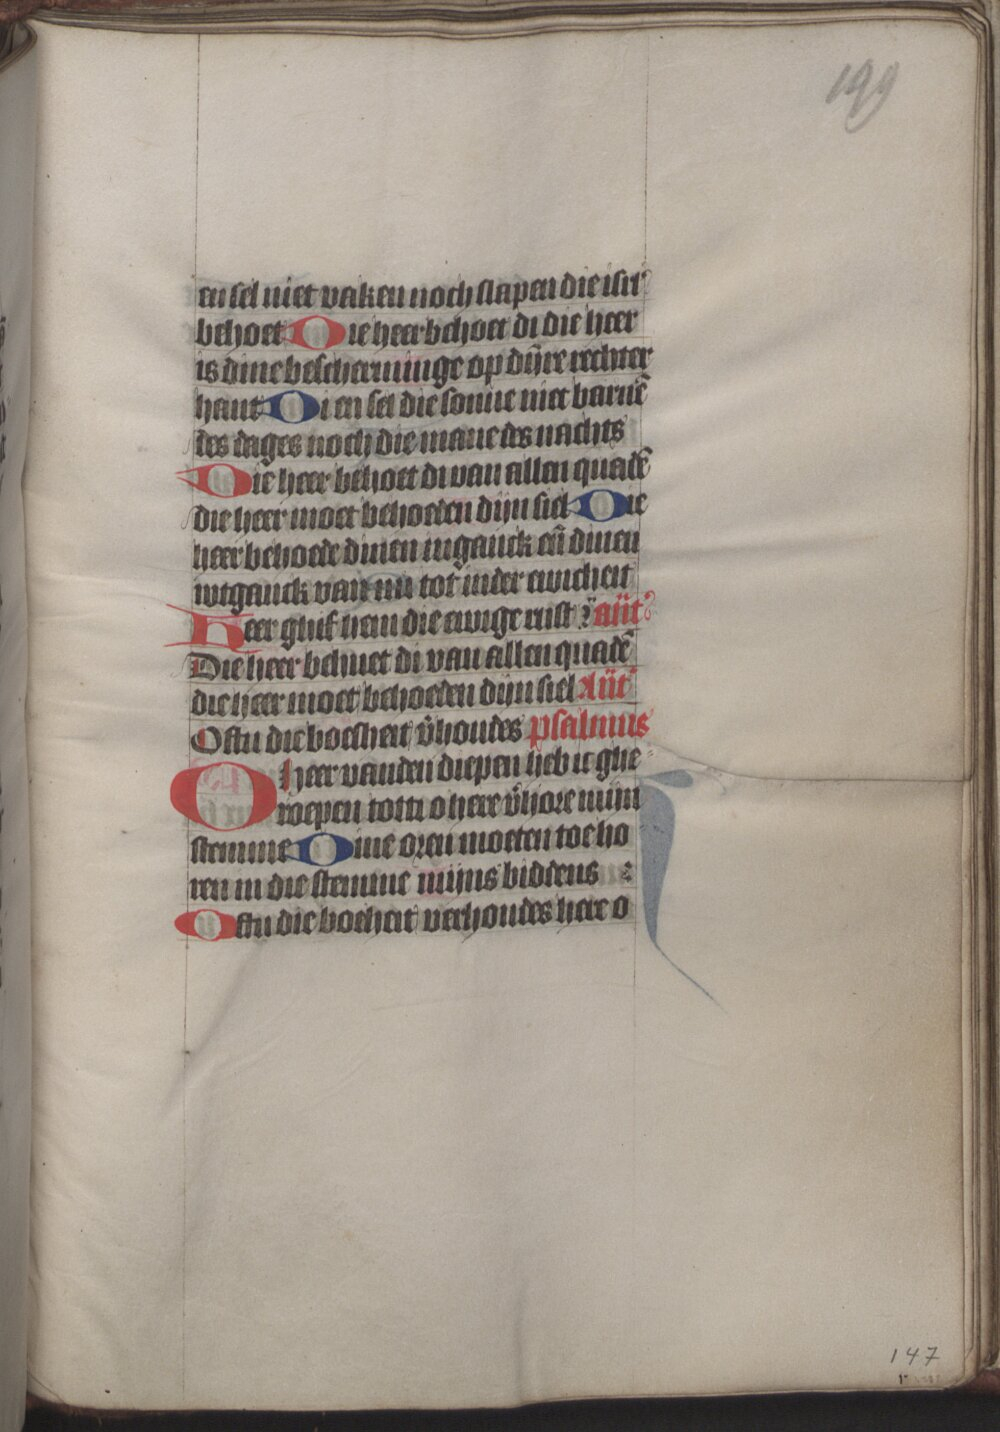 199
en sel niet vaken noch slapen die isrl'
behoet Die heer behoet di die heer
is dine bescherminge op dijnre rechter
hant Di en sel die sonne niet barnē
des dages noch die mane des nachts
Die heer behoet di van allen quadē
die heer moet behoeden dijn siel Die
heer behoede dinen inganck eñ dinen
wtganck van nu tot inder ewicheit
Heer ghif hem die ewige rust añt
Die heer behuet di van allen quadē
die heer moet behoeden dijn siel Añt
Ofstu die boesheit v̄houdes psalmus
O heer vanden diepen heb ic ghe
roepen totti o here v̄hore mijn
stemme Dine oren moeten toe ho
ren in die stemme mijns biddens
Ofstu die bosheit verhoudes here o
147